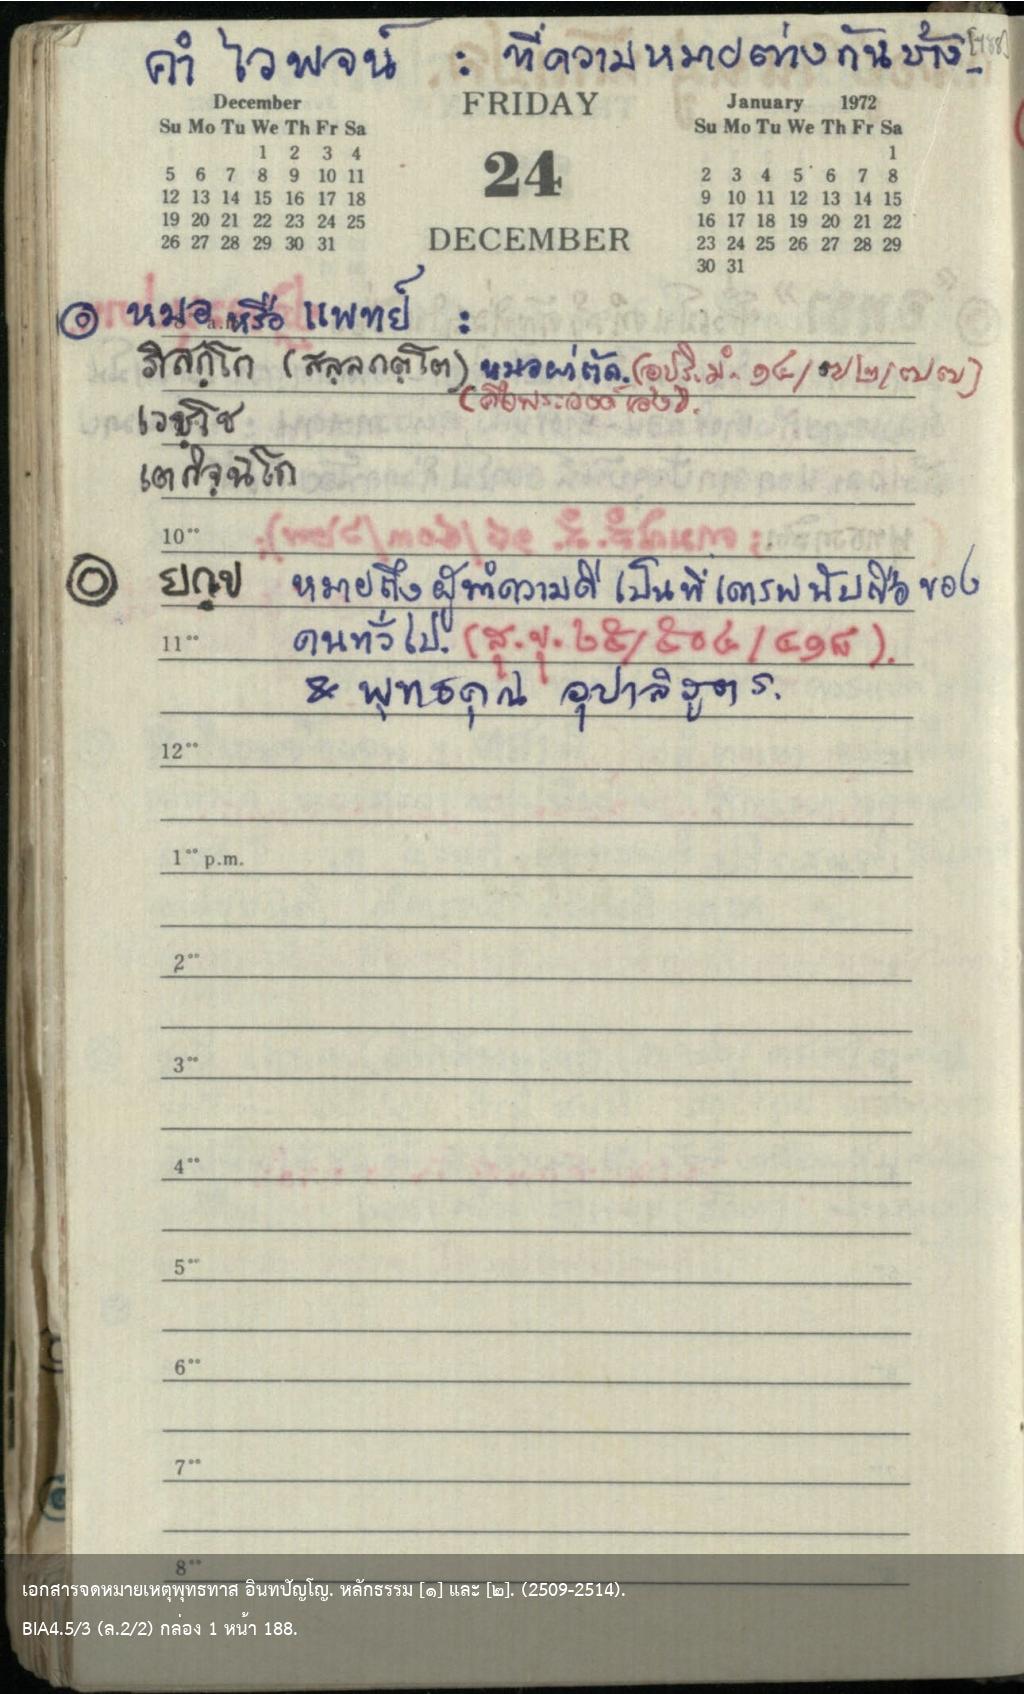 คำไวพจน์ : ที่ความหมายต่างกันบ้าง [188]
December FRIDAY January 1972
Su Mo Tu We Th Fr Sa Su Mo Tu We Th Fr Sa
1 2 3 4 1
5 6 7 8 9 10 11 24 2 3 4 5 6 7 8
12 13 14 15 16 17 18 9 10 11 12 13 14 15
19 20 21 22 23 24 25 16 17 18 19 20 21 22
26 27 28 29 30 31 DECEMBER 23 24 25 26 27 28 29
30 31
หมอ หรือ แพทย์ :
ภิสกฺโก (สลฺลกตฺโต) หมอผ่าตัด. (อุปริ. ม. ๑๔/
(คือพระองค์เอง).
เวชฺโช
เตกิจฺฉิโก
10°°
ยกฺข หมายถึง ผู้ทำความดี เป็นที่เคารพนับถือ ของ
11°° คนทั่วไป. (สุ. ขุ. ๒๕/๕๐๔/๔๑๘).
& พุทธคุณ อุปาลิสูตร.
12°°
1°° p.m.
2°°
3°°
4°°
5°°
6°°
7°°
8°°
เอกสารจดหมายเหตุพุทธทาส อินทปัญโญ. หลักธรรม [๑] และ [๒]. (2509-2514).
BIA4.5/3 (ล.2/2) กล่อง 1 หน้า 188.